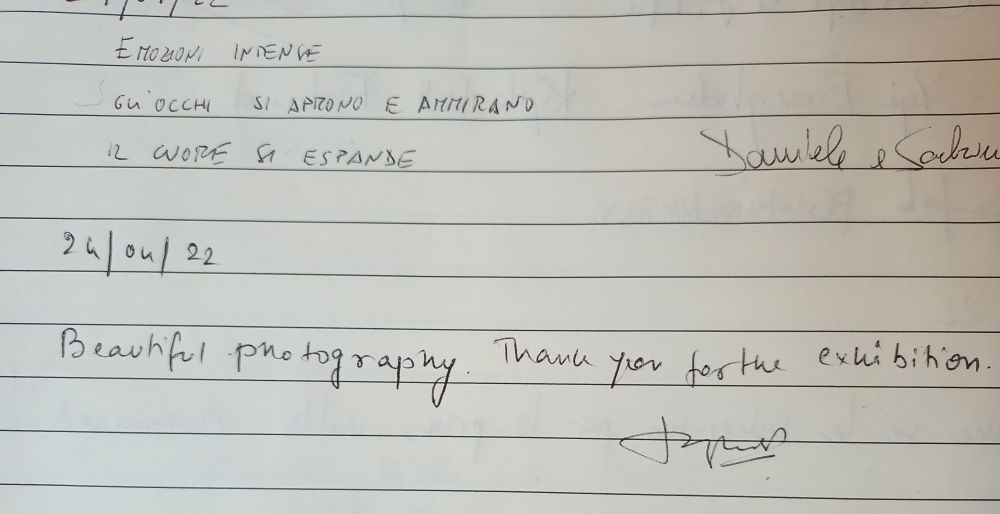 EMOZIONI INTENSE
GLI OCCHI SI APRONO E AMMIRANO
IL CUORE SI ESPANDE
Daniele e
24/04/22
Beautiful photography. Thank you for the exhibition.